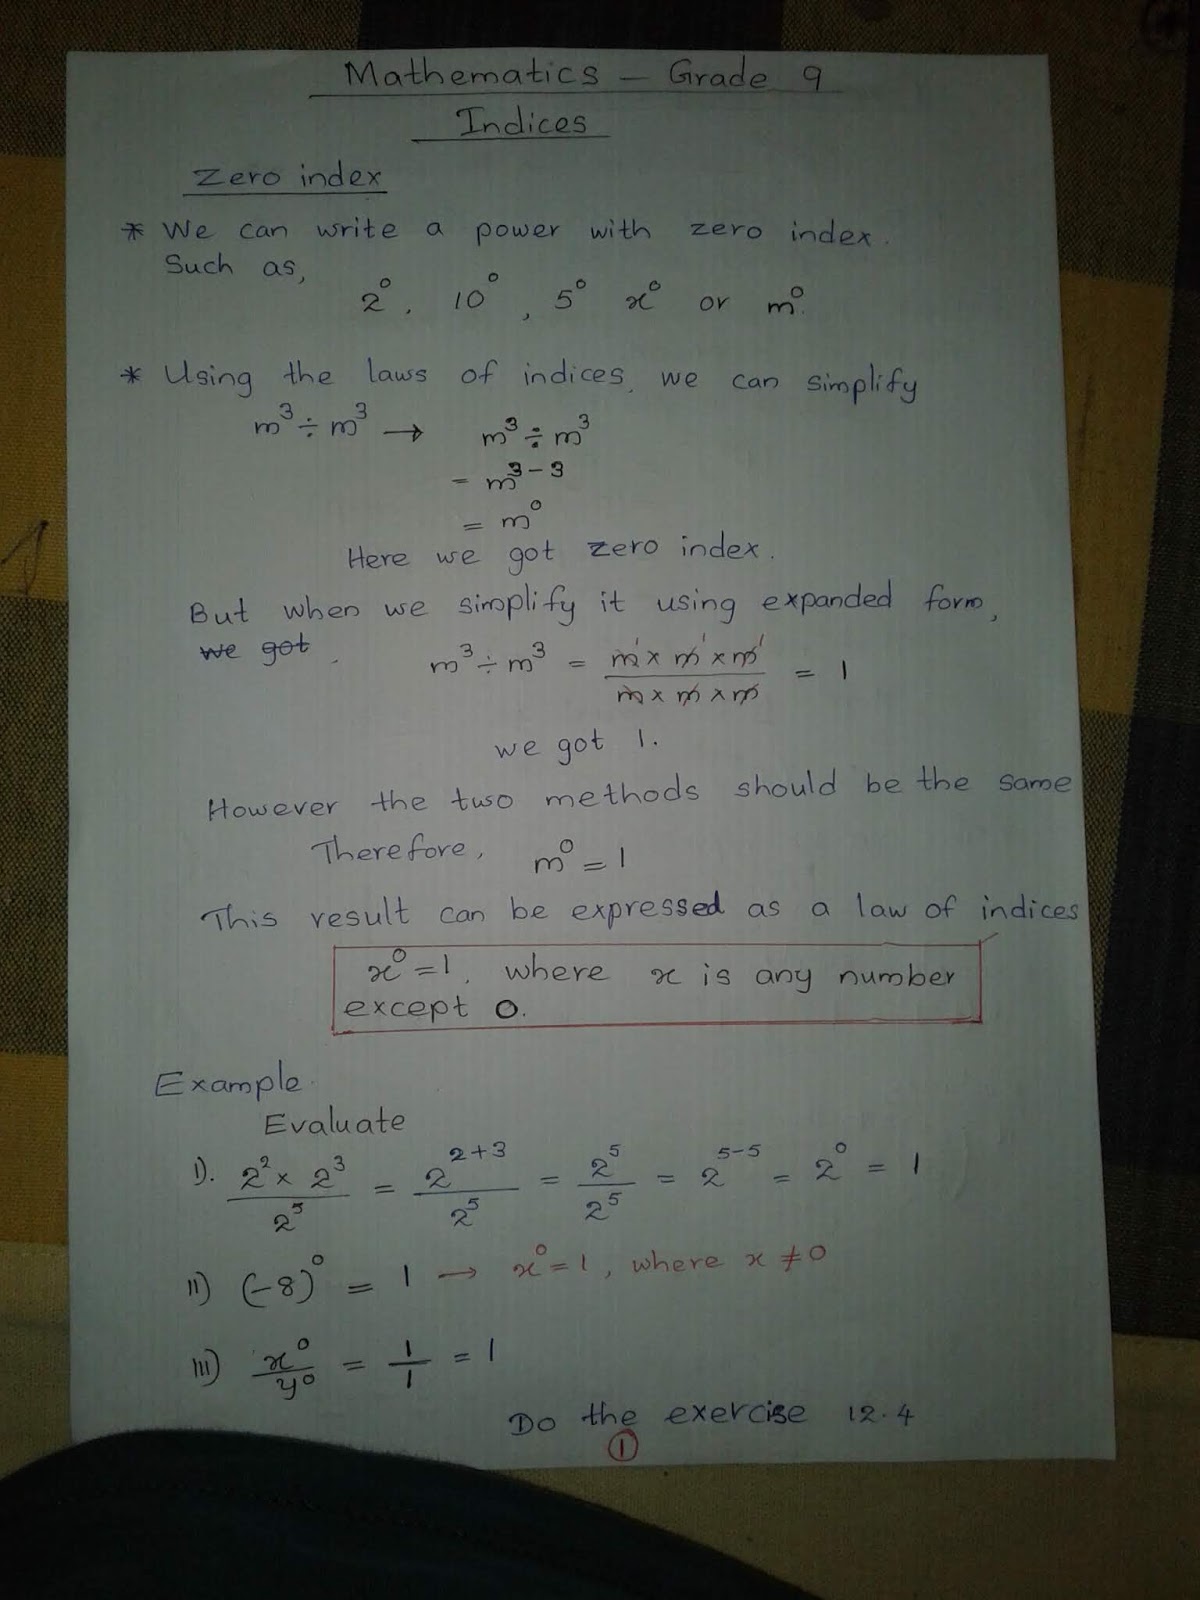 Mathematics – Grade 9
Indices
Zero index
* We can write a power with zero index.
Such as,
2⁰, 10⁰, 5⁰ x⁰ or m⁰.
* Using the laws of indices, we can simplify
m³ ÷ m³ → m³ ÷ m³
= m³⁻³
= m⁰
Here we got zero index.
But when we simplify it using expanded form,
we got. m³ ÷ m³ = (m¹ × m¹ × m¹)/(m × m × m) = 1
we got 1.
However the two methods should be the same
Therefore, m⁰ = 1
This result can be expressed as a law of indices
x⁰ = 1, where x is any number
except 0.
Example.
Evaluate
I). (2² × 2³)/2⁵ = 2²⁺³/2⁵ = 2⁵/2⁵ = 2⁵⁻⁵ = 2⁰ = 1
II) (-8)⁰ = 1 → x⁰ = 1, where x ≠ 0
III) x⁰/y⁰ = 1/1 = 1
Do the exercise 12.4
1